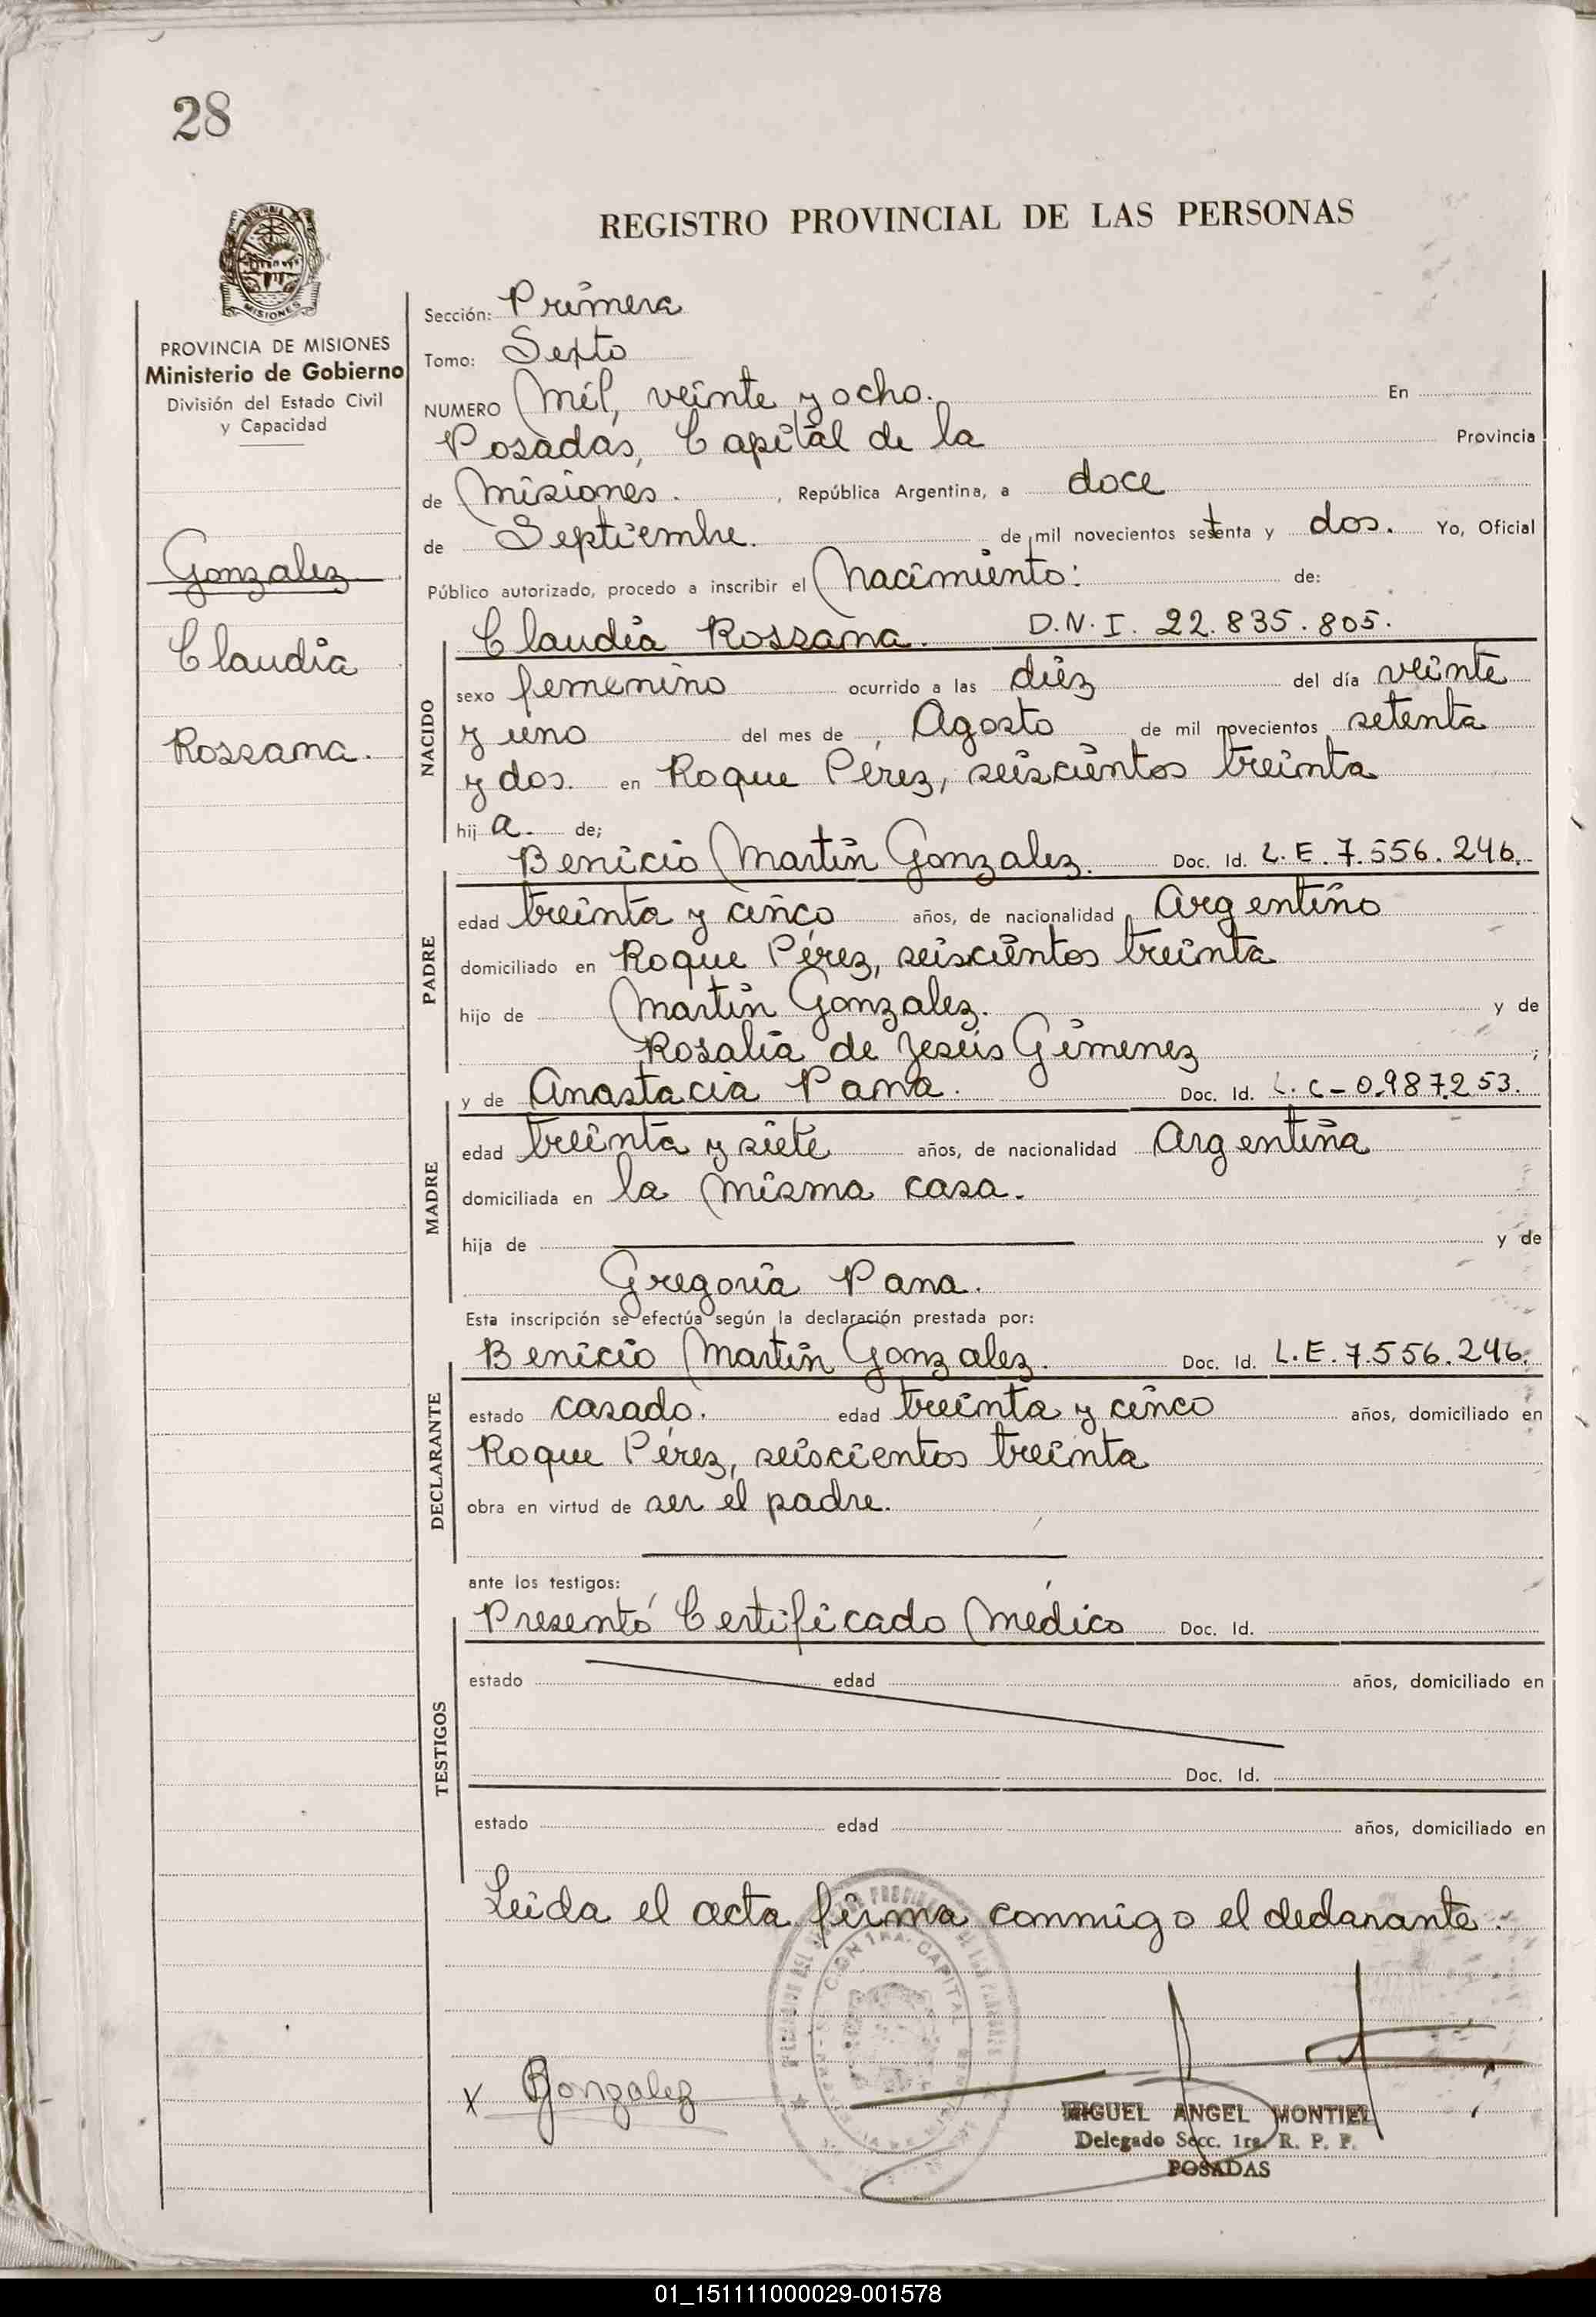 28
REGISTRO PROVINCIAL DE LAS PERSONAS
MISIONES
PROVINCIA DE MISIONES
Ministerio de Gobierno
División del Estado Civil
y Capacidad
Gonzalez
Claudia
Rossana.
Sección: Primera
Tomo: Sexto
NUMERO Mil, veinte y ocho. En
Posadas, Capital de la Provincia
de Misiones. , República Argentina, a doce
de Septiembre. de mil novecientos setenta y dos. Yo, Oficial
Público autorizado, procedo a inscribir el Nacimiento: de:
NACIDO
Claudia Rossana. D.N.I. 22.835.805.
sexo femenino ocurrido a las diéz del día veinte
y uno del mes de Agosto de mil novecientos setenta
y dos. en Roque Pérez, seiscientos treinta
hij a. de;
PADRE
Benicio Martin Gonzalez. Doc. Id. L.E. 7.556.246.
edad treinta y cinco años, de nacionalidad Argentino
domiciliado en Roque Pérez, seiscientos treinta
hijo de Martin Gonzalez. y de
Rosalia de Jesús Gimenez ;
MADRE
y de Anastacia Pana. Doc. Id. L.C-0.987.253.
edad treinta y siete años, de nacionalidad Argentina
domiciliada en la misma casa.
hija de y de
Gregoria Pana.
Esta inscripción se efectúa según la declaración prestada por:
DECLARANTE
Benicio Martin Gonzalez. Doc. Id. L.E. 7.556.246.
estado casado. edad treinta y cinco años, domiciliado en
Roque Pérez, seiscientos treinta
obra en virtud de ser el padre.
ante los testigos:
TESTIGOS
Presentó Certificado Médico Doc. Id.
estado edad años, domiciliado en
Doc. Id.
estado edad años, domiciliado en
Leida el acta firma conmigo el declarante.
x Bgonzalez
MIGUEL ANGEL MONTIEL
Delegado Secc. 1ra. R. P. P.
POSADAS
01_151111000029-001578